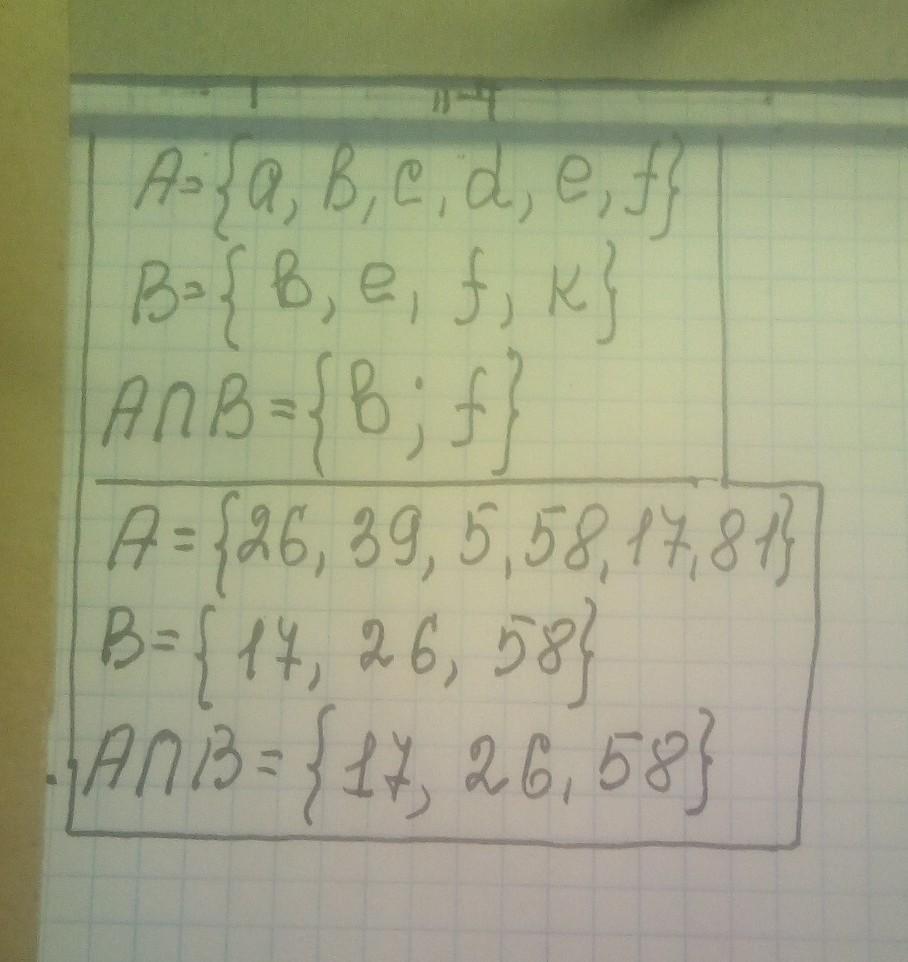 A={a, b, c, d, e, f}
B={b, e, f, k}
A∩B={b; f}
A={26, 39, 5, 58, 17, 81}
B={17, 26, 58}
A∩B={17, 26, 58}